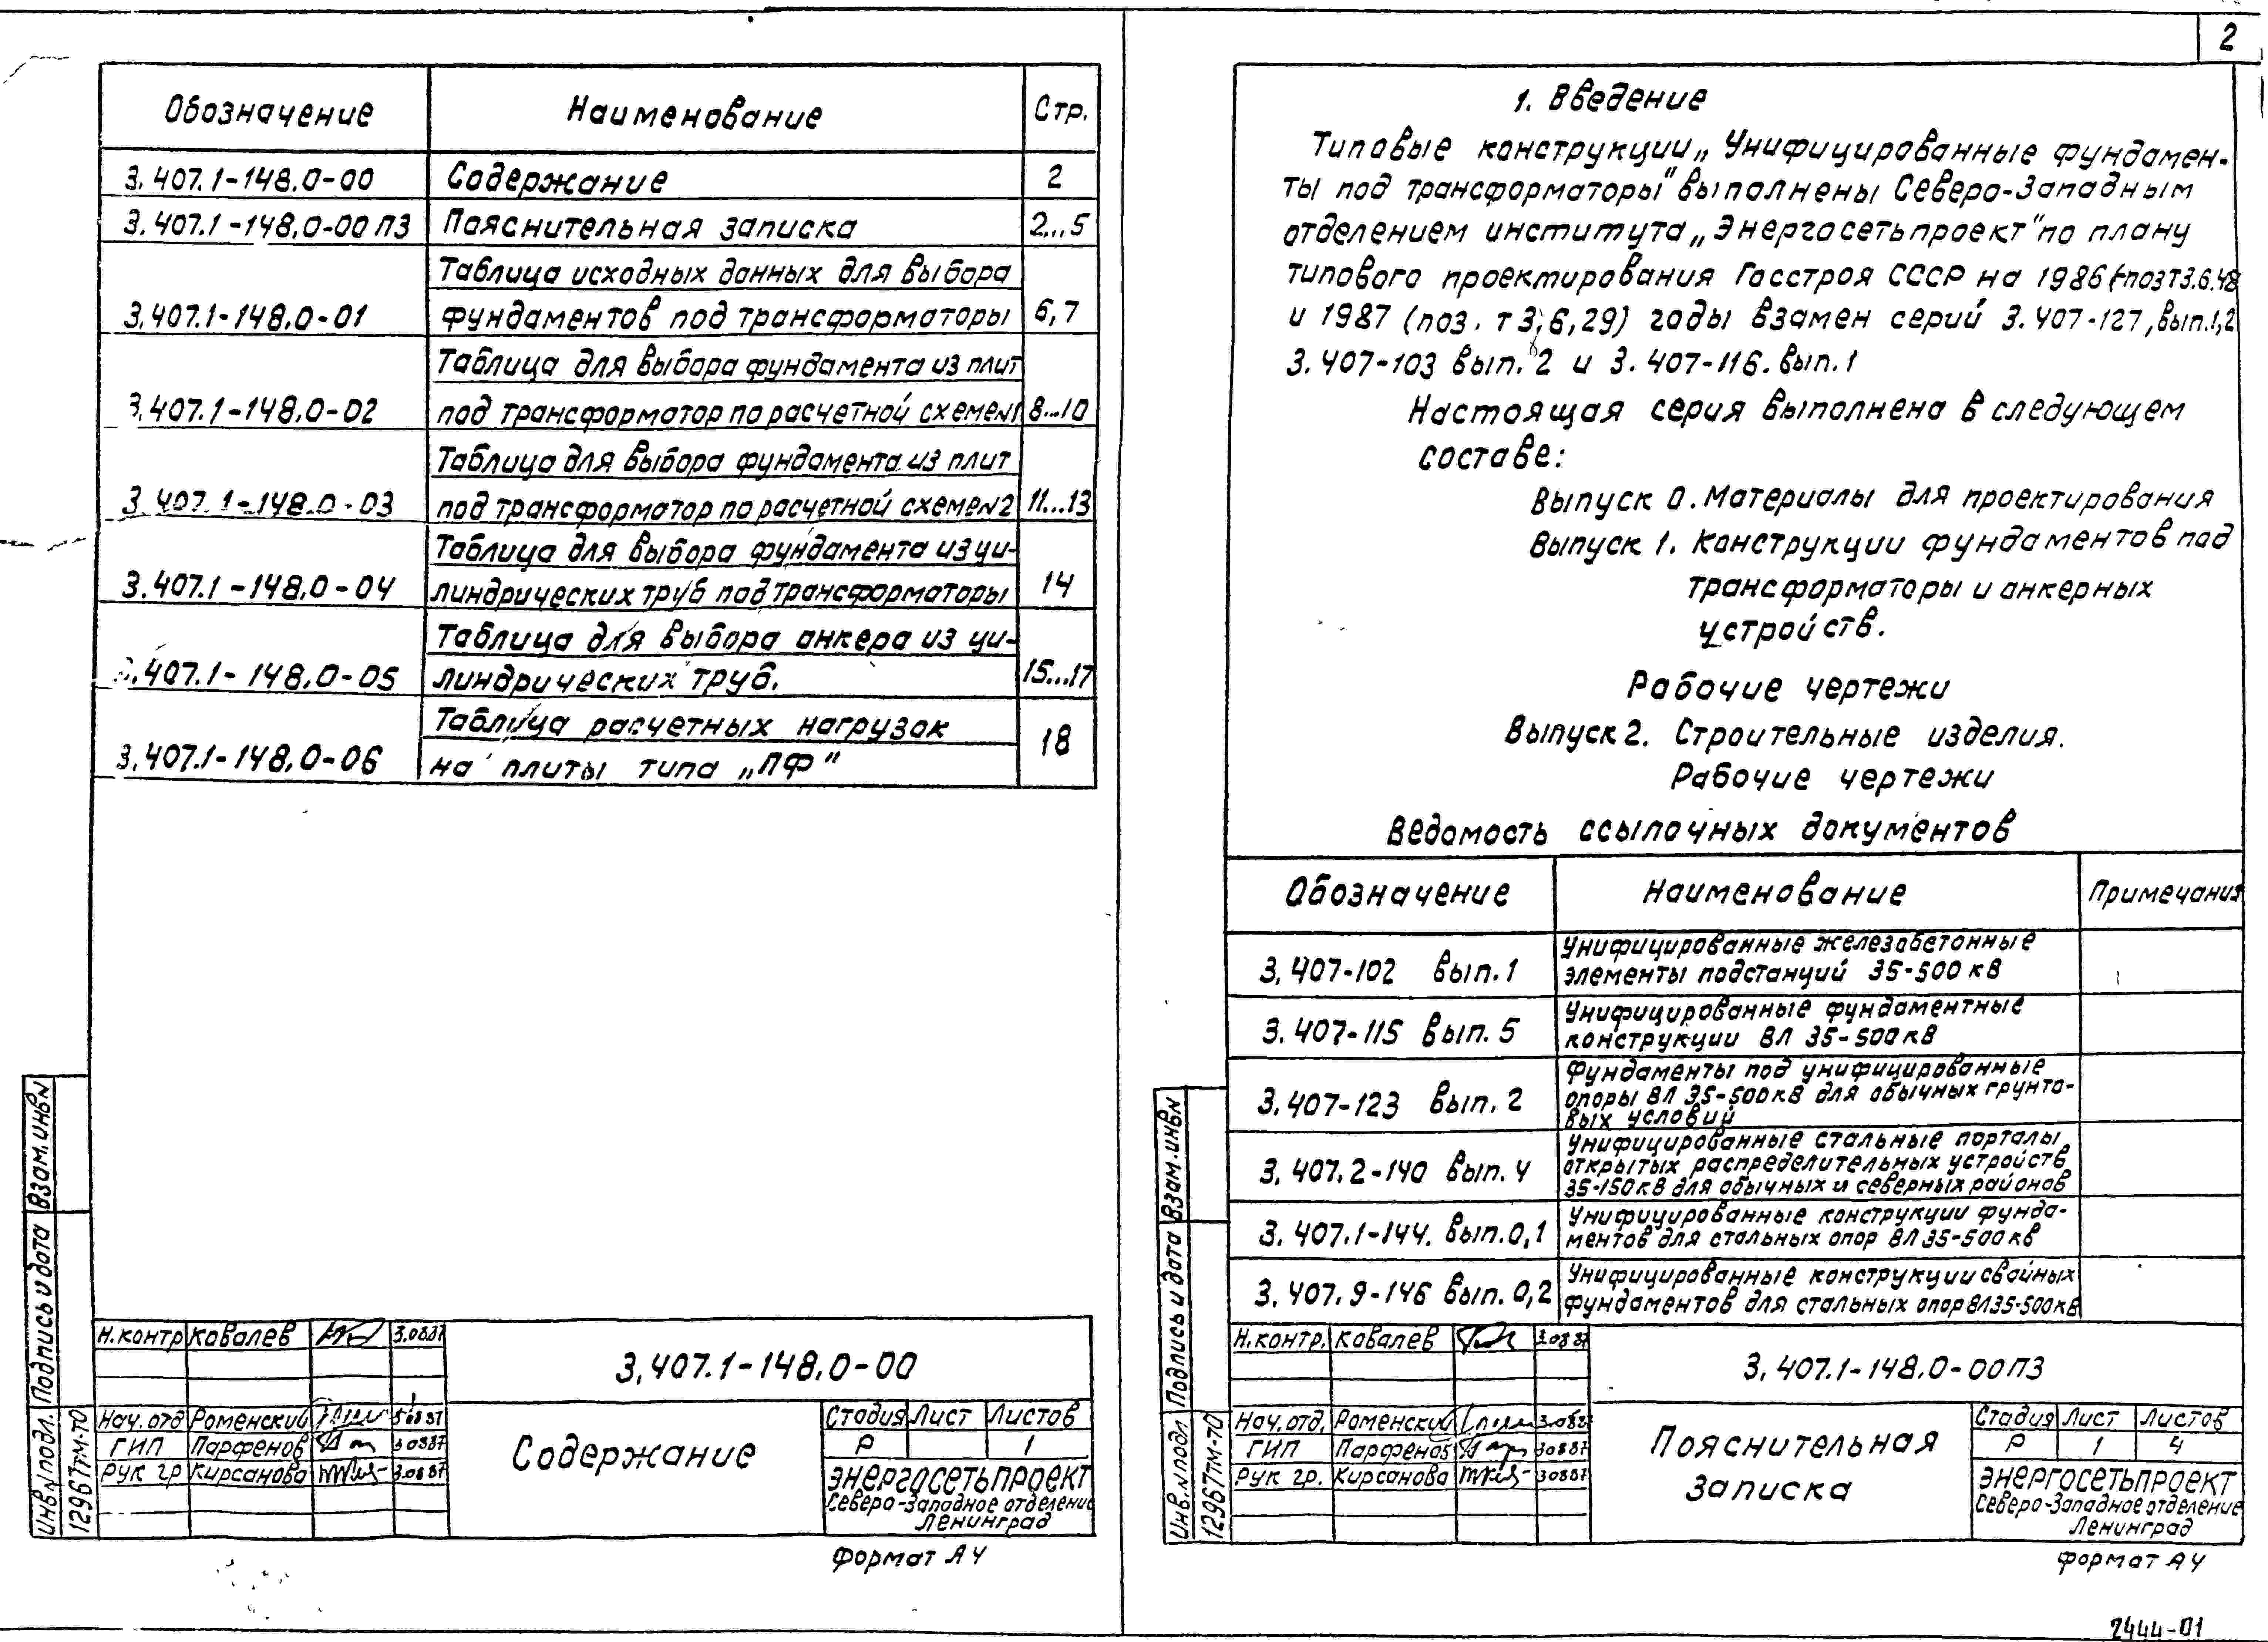 2
Обозначение Наименование Стр.
3.407.1-148.0-00 Содержание 2
3.407.1-148.0-00ПЗ Пояснительная записка 2...5
Таблица исходных данных для выбора
3.407.1-148.0-01 фундаментов под трансформаторы 6,7
Таблица для выбора фундамента из плит
3.407.1-148.0-02 под трансформатор по расчетной схеме №1 8...10
Таблица для выбора фундамента из плит
3.407.1-148.0-03 под трансформатор по расчетной схеме №2 11...13
Таблица для выбора фундамента из ци-
3.407.1-148.0-04 линдрических труб под трансформаторы 14
Таблица для выбора анкера из ци-
3.407.1-148.0-05 линдрических труб. 15...17
Таблица расчетных нагрузок
3.407.1-148.0-06 на плиты типа „ПФ" 18
Взам.инв№
Подпись и дата
Инв.№подл.
12967тм-т0
Н.контр Ковалев 3.0887
3.407.1-148.0-00
Нач.отд Роменский
ГИП Парфенов 30887
Рук гр Кирсанова 3.0887
Содержание
Стадия Лист Листов
Р 1
Энергосетьпроект
Северо-Западное отделение
Ленинград
Формат А4
1. Введение
Типовые конструкции „Унифицированные фундамен-
ты под трансформаторы" выполнены Северо-Западным
отделением института „Энергосетьпроект" по плану
типового проектирования Госстроя СССР на 1986 (поз Т3.6.48
и 1987 (поз. т 3,6,29) годы взамен серий 3.407-127, вып.1,2
3.407-103 вып. 2 и 3.407-116. вып.1
Настоящая серия выполнена в следующем
составе:
Выпуск 0. Материалы для проектирования
Выпуск 1. Конструкции фундаментов под
трансформаторы и анкерных
устройств.
Рабочие чертежи
Выпуск 2. Строительные изделия.
Рабочие чертежи
Ведомость ссылочных документов
Обозначение Наименование Примечания
Унифицированные железобетонные
3.407-102 вып.1 элементы подстанций 35-500 кВ
Унифицированные фундаментные
3.407-115 вып. 5 конструкции ВЛ 35-500кВ
Фундаменты под унифицированные
3.407-123 вып. 2 опоры ВЛ 35-500кВ для обычных грунто-
вых условий
Унифицированные стальные порталы
3.407.2-140 вып. 4 открытых распределительных устройств
35-150кВ для обычных и северных районов
Унифицированные конструкции фунда-
3.407.1-144. вып.0,1 ментов для стальных опор ВЛ35-500кВ
Унифицированные конструкции свайных
3.407.9-146 вып. 0,2 фундаментов для стальных опор ВЛ35-500кВ
Взам.инв№
Подпись и дата
Инв.№подл
12967тм-т0
Н.контр. Ковалев 3.0887
3.407.1-148.0-00ПЗ
Нач.отд. Роменский 3.0887
ГИП Парфенов 30887
Рук гр. Кирсанова 30887
Пояснительная
записка
Стадия Лист Листов
Р 1 4
Энергосетьпроект
Северо-Западное отделение
Ленинград
Формат А4
2444-01